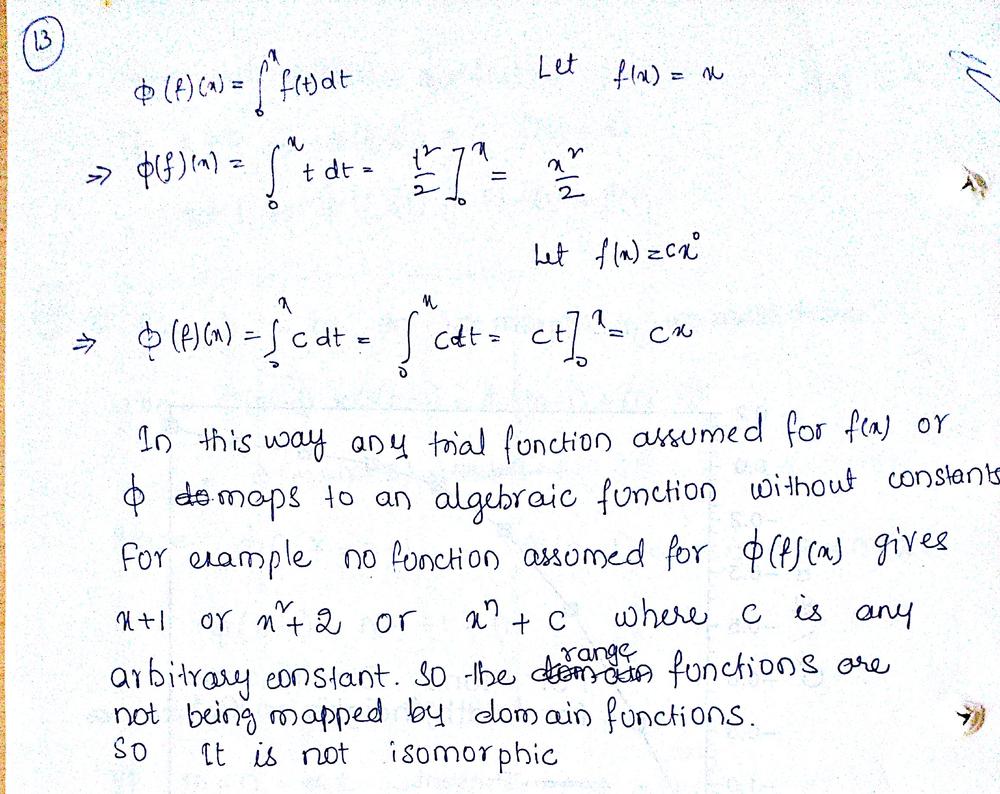 13
ϕ(f)(x) = ∫₀ˣ f(t)dt Let f(x) = x
⇒ ϕ(f)(x) = ∫₀ˣ t dt = t²/2 ]₀ˣ = x²/2
Let f(x) = cx⁰
⇒ ϕ(f)(x) = ∫₀ˣ c dt = ∫₀ˣ cdt = ct]₀ˣ = cx
In this way any trial function assumed for f(x) or
ϕ maps to an algebraic function without constants
For example no function assumed for ϕ(f)(x) gives
x+1 or x²+2 or xⁿ + c where c is any
arbitrary constant. So the range functions are
not being mapped by domain functions.
So It is not isomorphic